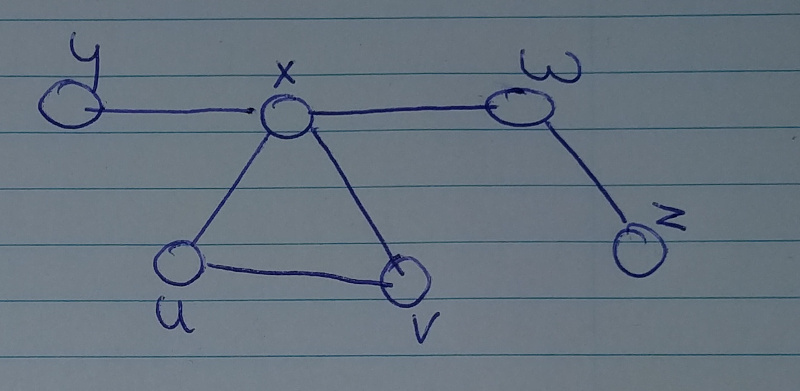 y
x
w
z
u
v